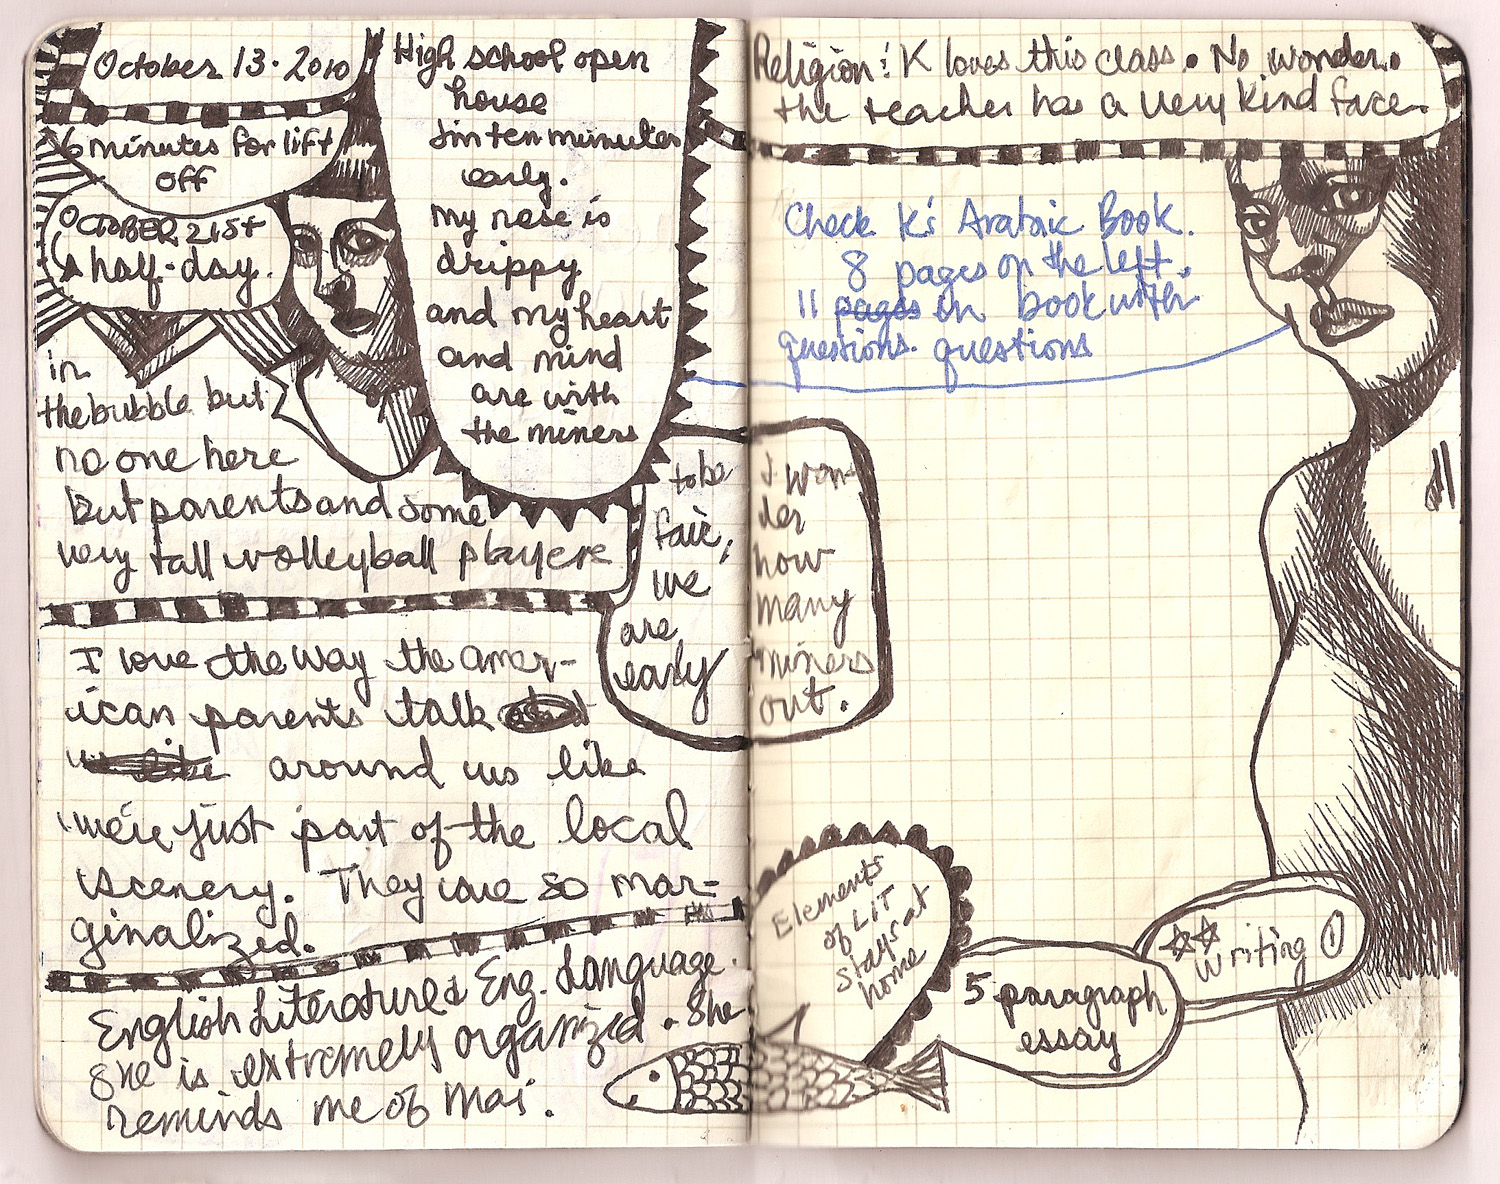 October 13. 2010
6 minutes for lift
off
OCTOBER 21st
A half-day.
High school open
house
I'm ten minutes
early.
my nose is
drippy
and my heart
and mind
are with
the miners
in
the bubble but
no one here
But parents and some
very tall volleyball players
to be
fair,
we
are
early
I won-
der
how
many
miners
out.
I love the way the amer-
ican parents talk
around us like
we're just part of the local
scenery. They are so mar-
ginalized.
English Literature & Eng. Language.
She is extremely organized. She
reminds me of Mai.
Religion: K loves this class. No wonder.
the teacher has a very kind face.
Check K's Arabic Book.
8 pages on the left.
11 pages on book with
questions. questions
Elements
of LIT
stays at
home
5 paragraph
essay
Writing 1